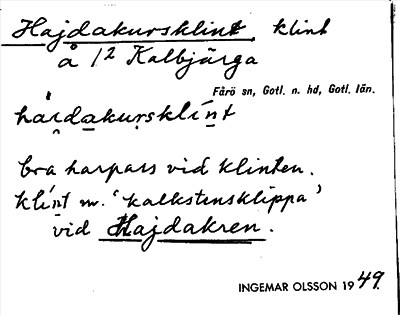 Hajdakursklint, klint
å 1² Kalbjärga
Fårö sn, Gotl. n. hd, Gotl. län.
bra harpass vid klinten.
klint m. 'kalkstensklippa'
vid Hajdakren.
INGEMAR OLSSON 1949.